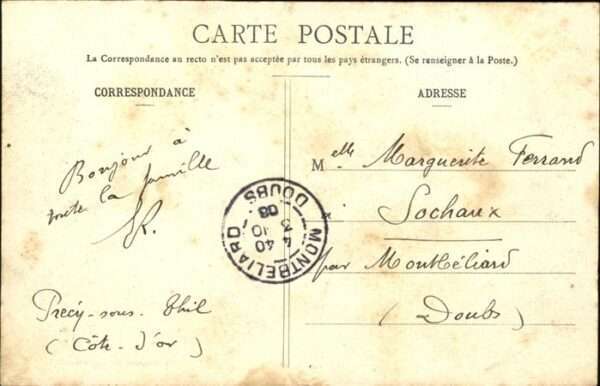 CARTE POSTALE
La Correspondance au recto n'est pas acceptée par tous les pays étrangers. (Se renseigner à la Poste.)
CORRESPONDANCE
Bonjour à
toute la famille
Précy-sous-Thil
(Côte-d'or)
ADRESSE
Melle Marguerite Ferrand
Sochaux
par Montbéliard
(Doubs)
MONTBELIARD
DOUBS
4 40
3 - 10
08